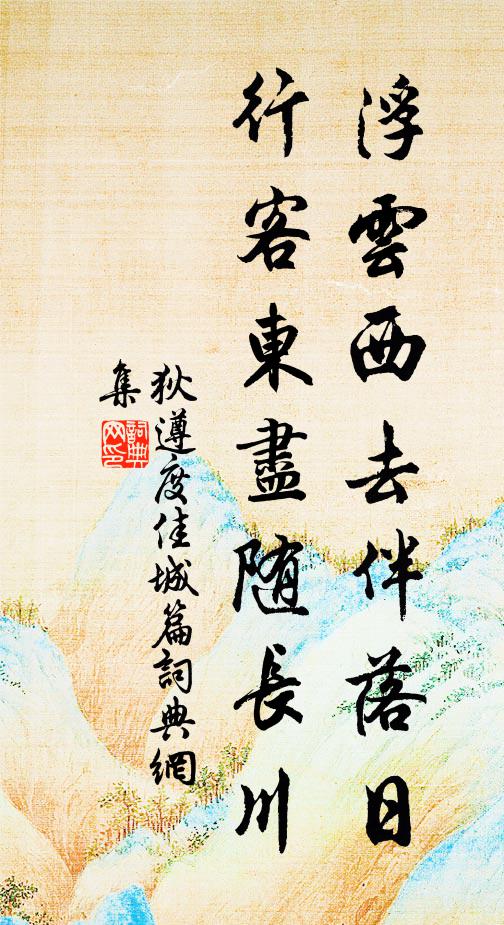 浮雲西去伴落日
行客東盡随長川
狄遵度佳城篇詞典網
集
詞典网印